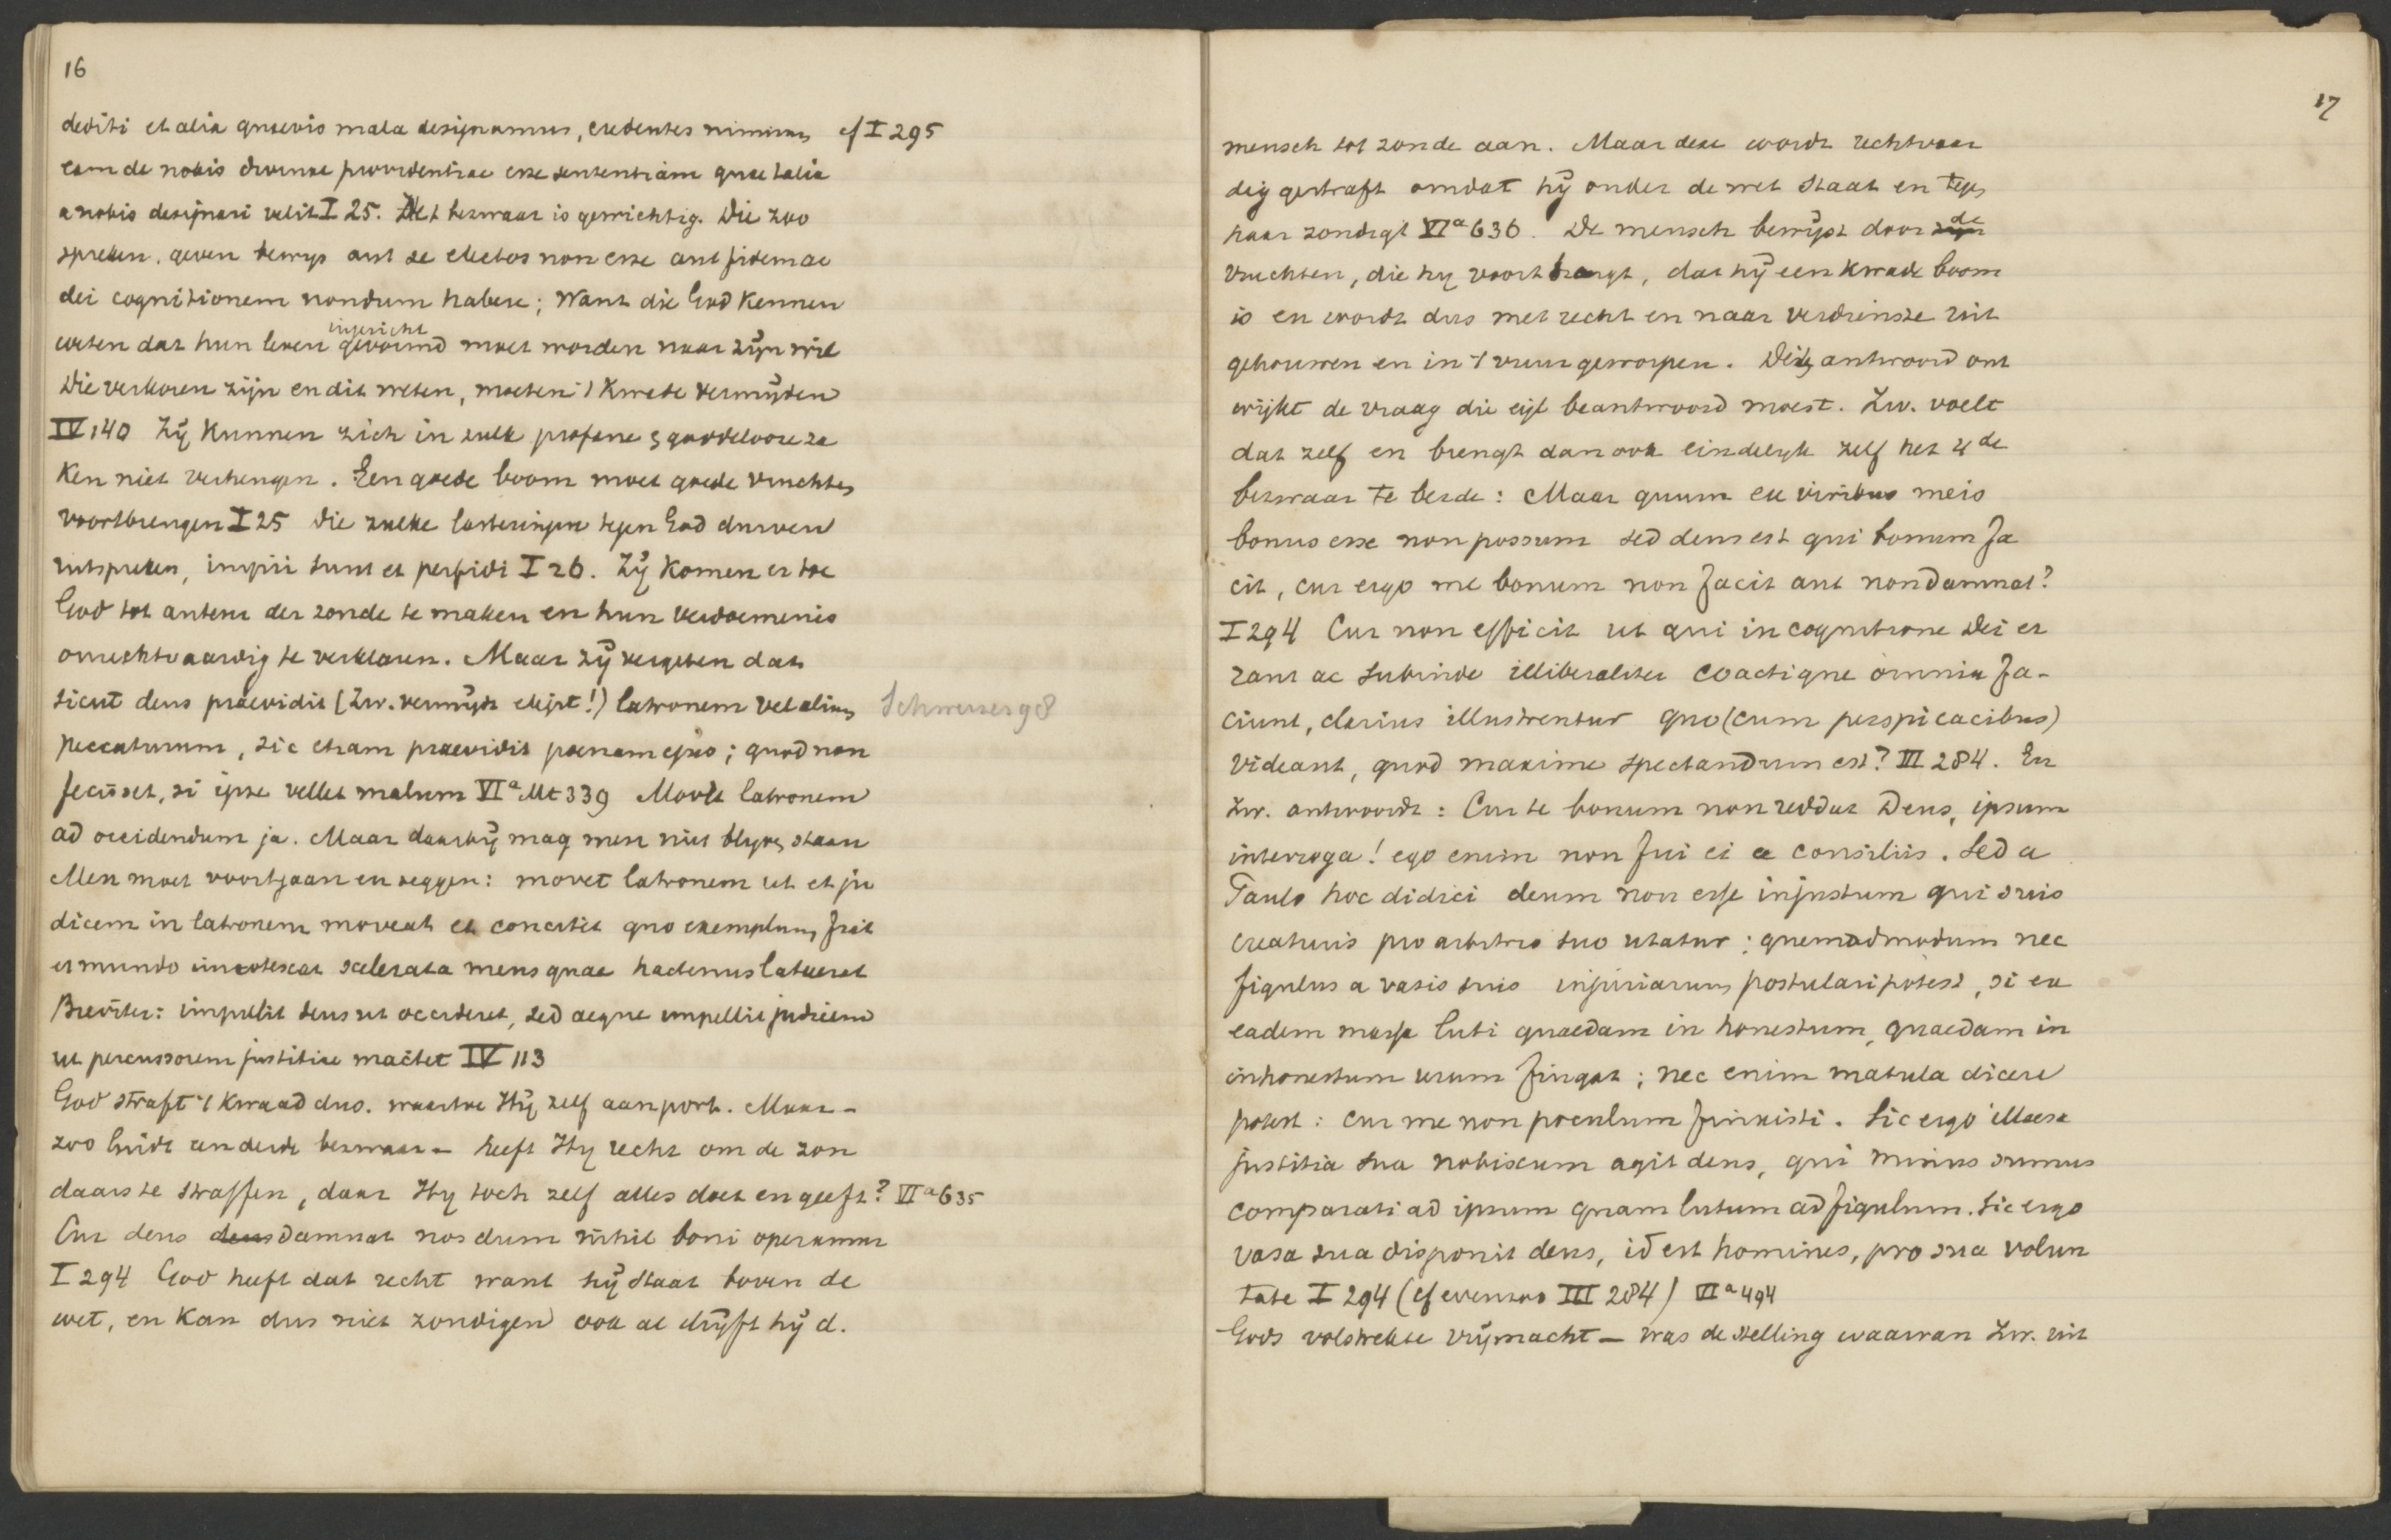 16
dediti et alia quaevis mala designamus, credentes nimirum cf I 295
eam de nobis divinae providentiae esse sententiam quae talia
a nobis designari velit I 25. Het bezwaar is gewichtig. Die zoo
spreken, geven bewys aut se electos non esse aut fidem ac
dei cognitionem nondum habere; Want die God kennen
ingericht
weten dat hun leven gevormd moet worden naar zijn wil
Die verkoren zijn en dit weten, moeten 't kwade vermijden
IV 140 Zij kunnen zich in zulk profane & goddelooze za
ken niet verhengen. Een goede boom moet goede vruchten
voortbrengen I 25 Die zulke lasteringen tegen God durven
uitspreken, impii sunt et perfidi I 26. Zij komen er toe
God tot auteur der zonde te maken en hun verdoemenis
onrechtvaardig te verklaren. Maar zij vergeten dat
sicut deus praevidit (Zw. vermijdt elegit!) latronem vel alium Schweizer 98
peccaturum, sic etiam praevidit poenam ejus; quod non
fecisset, si ipse vellet malum VIa Mt 339 Movet latronem
ad occidendum ja. Maar daarbij mag men niet blyven staan
Men moet voortgaan en zeggen: movet latronem ut et ju
dicem in latronem moveat et concitet quo exemplum fiat
et mundo innotescat scelerata mens quae hactenus latuerat
Breviter: impulit deus ut occideret, sed aeque impellit judicem
ut percussorem justitiae mactet IV 113
God straft 't kwaad dus. waartoe Hij zelf aanport. Maar -
zoo luidt een derde bezwaar - heeft Hy recht om de zon
daars te straffen, daar Hy toch zelf alles doet en geeft? VIa 635
Cur deus deus damnat nos dum nihil boni operamur
I 294 God heeft dat recht want hij staat boven de
wet, en kan dus niet zondigen ook al drijft hij d.
17
mensch tot zonde aan. Maar deze wordt rechtvaar
dig gestraft omdat hij onder de wet staat en tegen
haar zondigt VIa 636. De mensch bewijst door zijn de
vruchten, die hy voortbrengt, dat hij een kwade boom
is en wordt dus met recht en naar verdienste uit
gehouwen en in 't vuur geworpen. Dit antwoord ont
wijkt de vraag die eigl beantwoord moest. Zw. voelt
dat zelf en brengt dan ook eindelyk zelf het 4de
bezwaar te berde: Maar quum ex viribus meis
bonus esse non possum sed deus est qui bonum fa
cit, cur ergo me bonum non facit aut non damnat?
I 294 Cur non efficit ut qui in cognitione Dei er
rant ac subinde illiberaliter coactique omnia fa-
ciunt, clarius illustrentur quo (cum perspicacibus)
videant, quod maxime spectandum est? III 284. En
Zw. antwoordt: Cur te bonum non reddat Deus, ipsum
interroga! ego enim non fui ei a consiliis. Sed a
Paulo hoc didici deum non esse injustum qui suis
creaturis pro arbitrio suo utatur: quemadmodum nec
figulus a vasis suis injuriarum postulari potest, si ex
eadem massa luti quaedam in honestum, quaedam in
inhonestum usum fingat; nec enim matula dicere
potest: cur me non poculum finxisti. Sic ergo illaesa
justitia sua nobiscum agit deus, qui minus sumus
comparati ad ipsum quam lutum ad figulum. Sic ergo
vasa sua disponit deus, id est homines, pro sua volun
tate I 294 (cf evenzoo III 284) VIa 494
Gods volstrekte vrijmacht - was de stelling waarvan Zw. uit